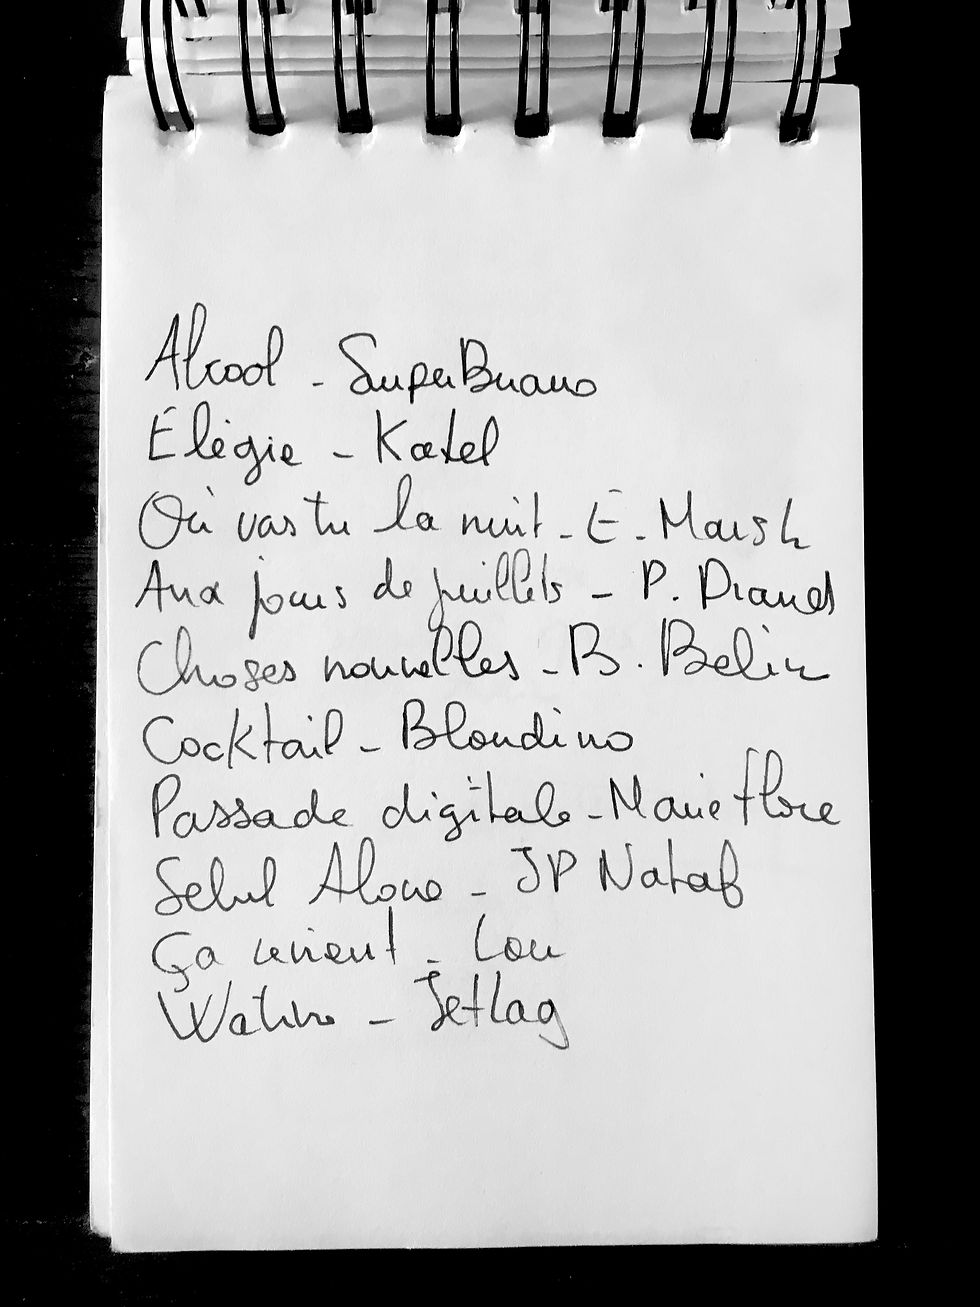 Alcool - SuperBravo
Élégie - Katel
Où vas tu la nuit - E. Marsh
Aux jours de juillets - P. Diamel
Choses nouvelles - B. Belin
Cocktail - Blondino
Passade digitale - Marie flore
Seul Alone - JP Nataf
Ça revient - Lou
- Jetlag